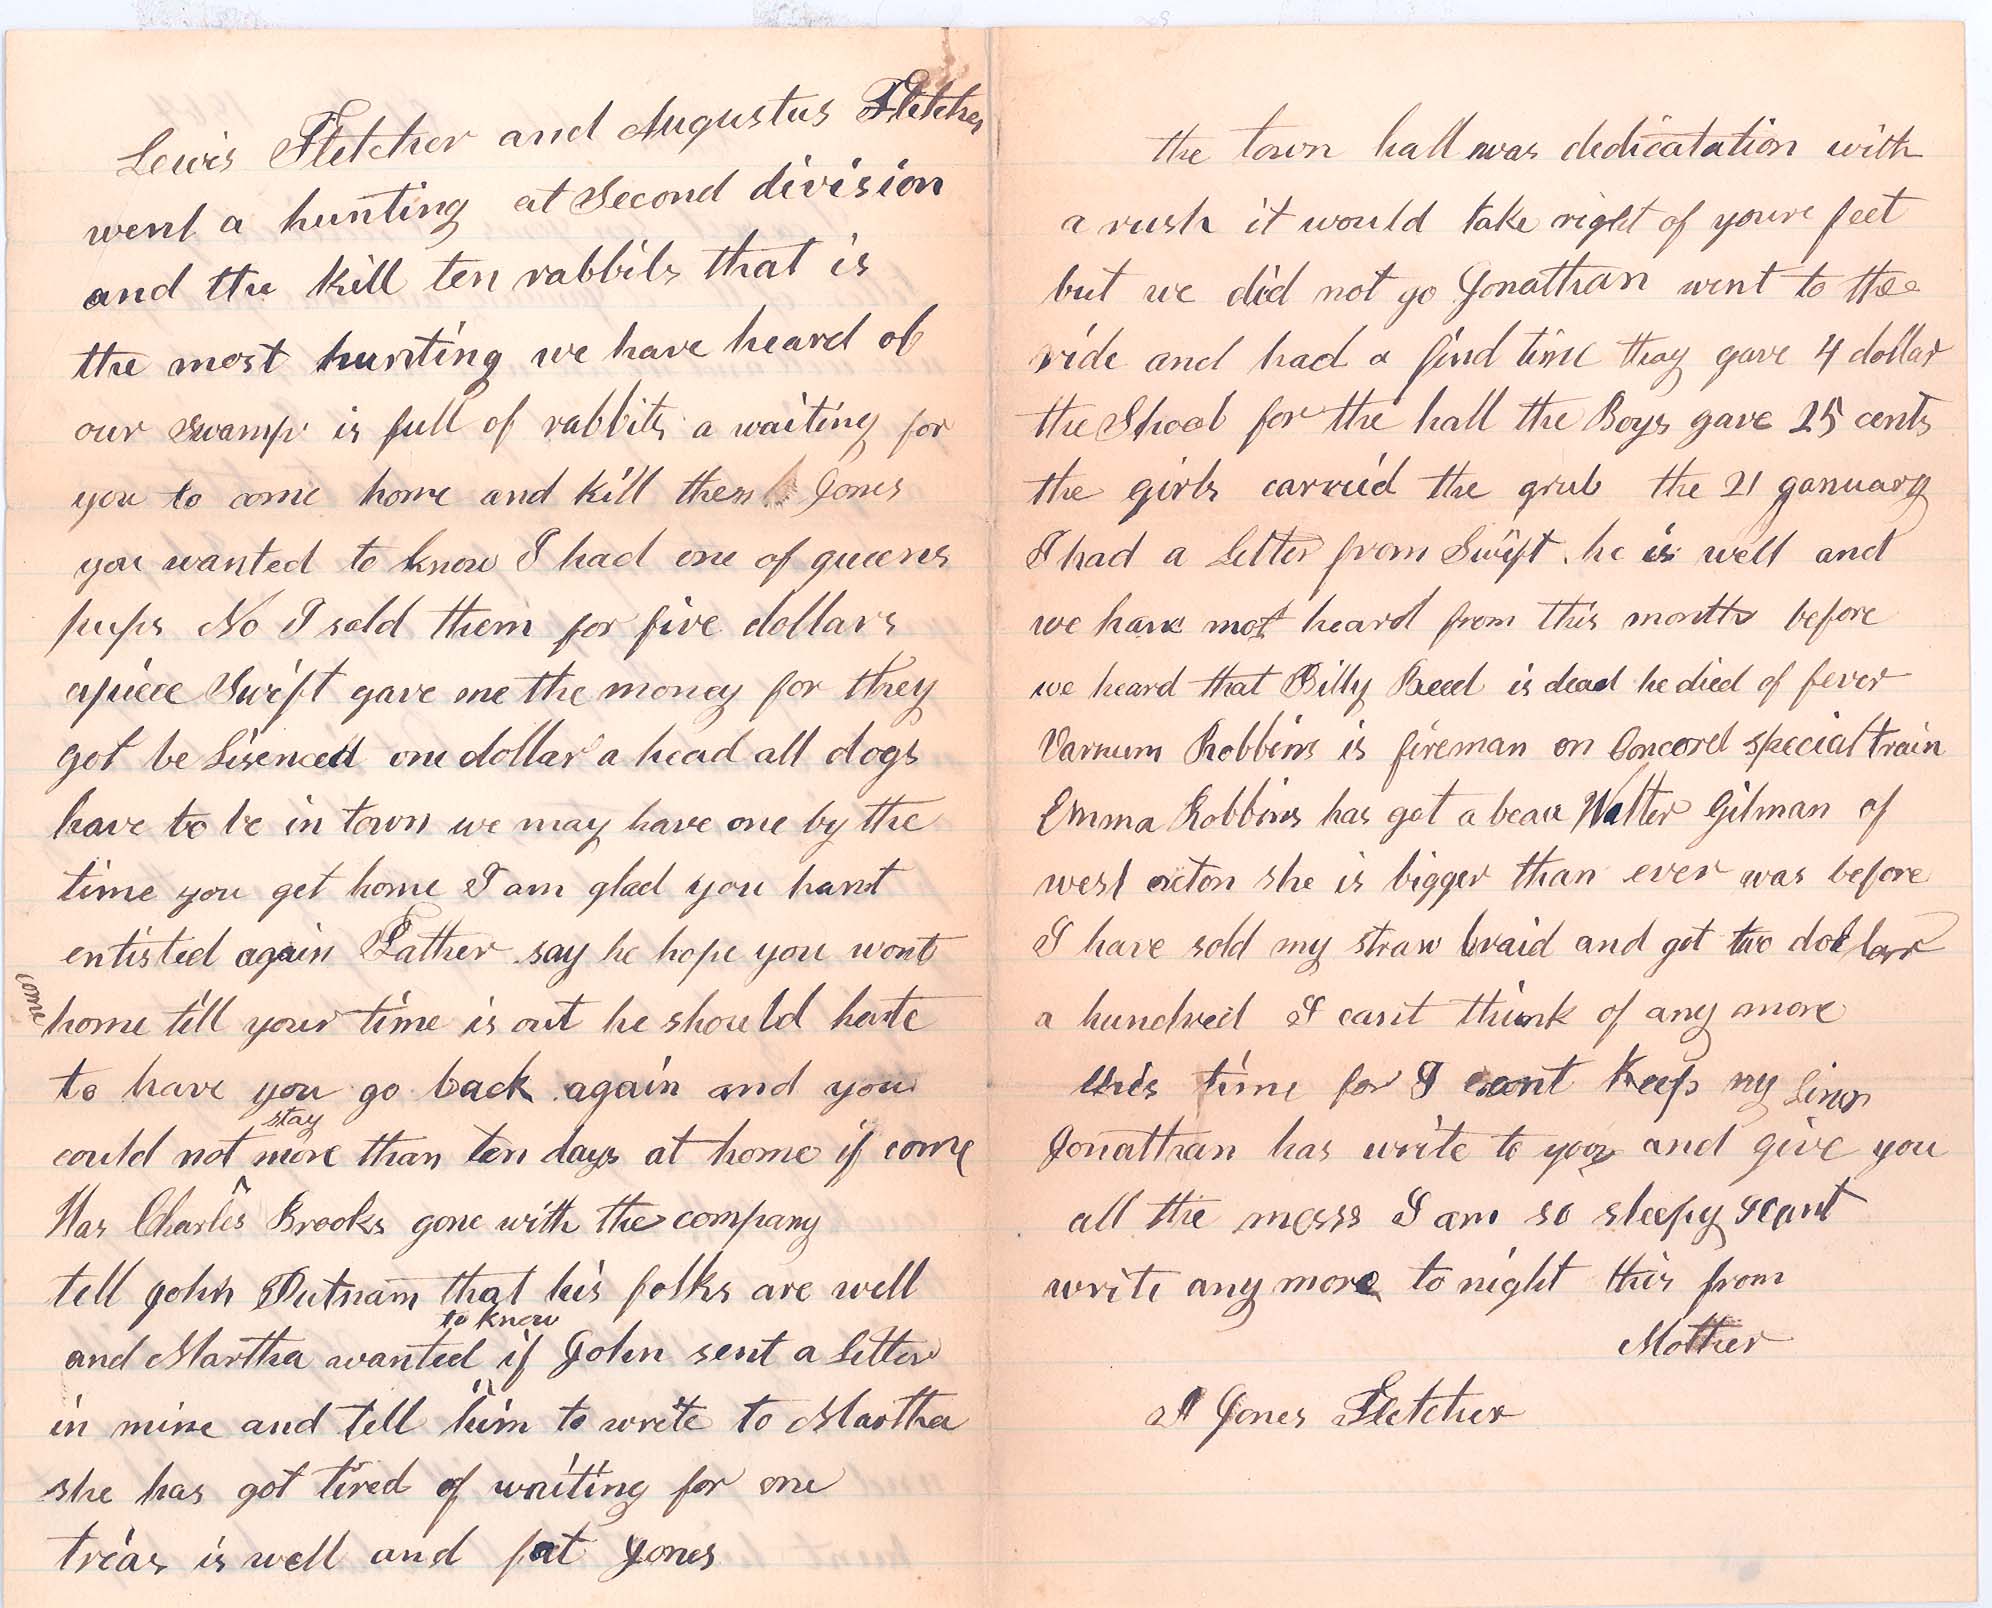 Lewis Fletcher and Augustus Fletcher
went a hunting at Second division
and the kill ten rabbits that is
the most hunting we have heard of
our swamp is full of rabbits a waiting for
you to come home and kill them Jones
you wanted to know I had one of queens
pups No I sold them for five dollars
apiece Swift gave me the money for they
got be Lisenced one dollar a head all dogs
have to be in town we may have one by the
time you get home I am glad you hant
entisted again Father say he hope you wont
come
home till your time is out he should hate
to have you go back again and you
stay
could not more than ten days at home if come
Has Charles Brooks gone with the company
tell John Putnam that his folks are well
to know
and Martha wanted if John sent a Letter
in mine and tell him to write to Martha
she has got tired of waiting for one
trias is well and fat Jones
the town hall was dedicatation with
a rush it would take right of youre feet
but we did not go Jonathan went to the
ride and had a find time thay gave 4 dollar
the Shool for the hall the Boys gave 25 cents
the girls carried the grub the 21 ganuary
I had a Letter from Swift he is well and
we have not heard from this month before
we heard that Billy Reed is dead he died of fever
Varnum Robbins is fireman on Concord special train
Emma Robbins has got a beau Walter Gilman of
west acton she is bigger than ever was before
I have sold my straw braid and got two dollar
a hundred I cant think of any more
this time for I cant keep my Lines
Jonathan has write to you and give you
all the mess I am so sleepy I cant
write any more to night this from
Mother
A Jones Fletcher